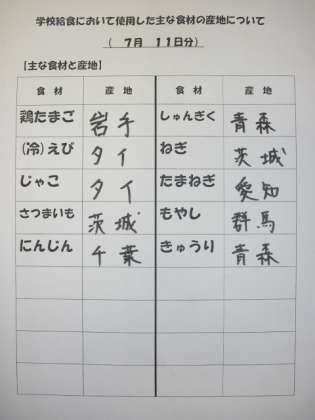 学校給食において使用した主な食材の産地について
（　7月　11日分）
【主な食材と産地】
食　材　産　地　食　材　産　地
鶏たまご　岩手　しゅんぎく　青森
（冷）えび　タイ　ねぎ　茨城
じゃこ　タイ　たまねぎ　愛知
さつまいも　茨城　もやし　群馬
にんじん　千葉　きゅうり　青森